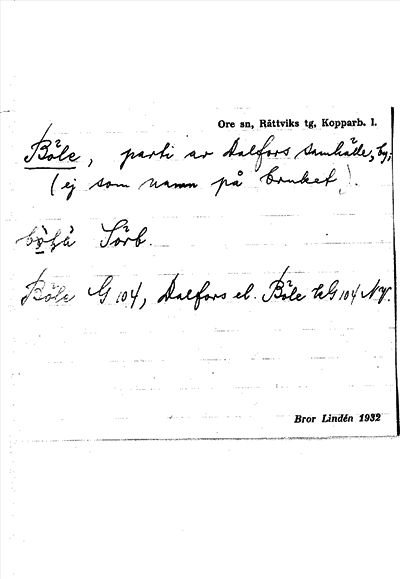 Ore sn, Rättviks tg, Kopparb. l.
Böle, parti av Dalfors samhälle, by;
(ej som namn på bruket).
Sörb.
Böle G 104, Dalfors el. Böle kG 104 NV.
Bror Lindén 1932